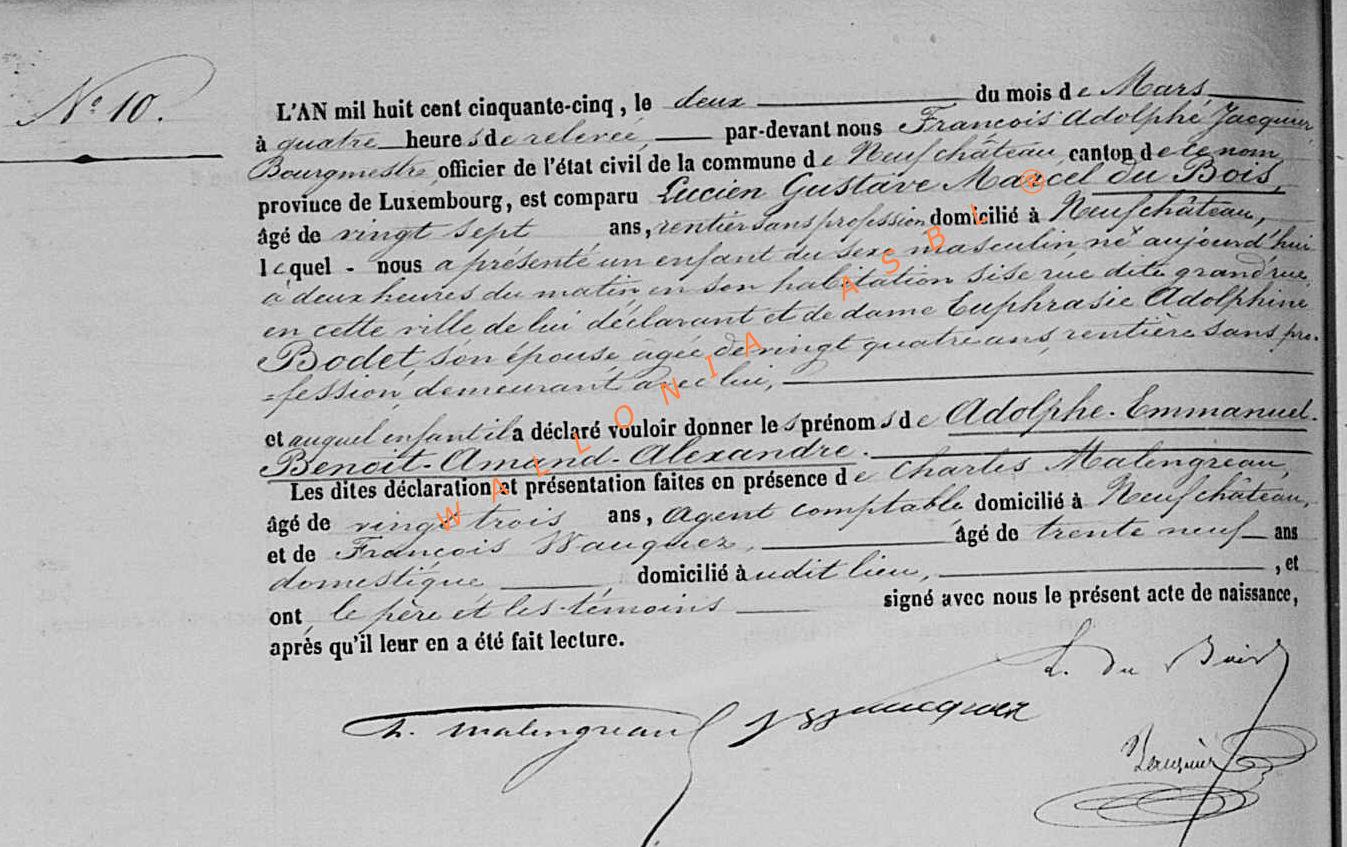 N° 10.
L'AN mil huit cent cinquante-cinq, le deux du mois de Mars
à quatre heures de relevée, par-devant nous François Adolphe Jacquier
Bourgmestre officier de l'état civil de la commune de Neufchâteau, canton de ce nom,
province de Luxembourg, est comparu Lucien Gustave Marcel du Bois,
âgé de vingt sept ans, rentier sans profession domicilié à Neufchâteau,
lequel - nous a présenté un enfant du sexe masculin né aujourd'hui
à deux heures du matin en son habitation sise rue dite grand'rue
en cette ville de lui déclarant et de dame Euphrasie Adolphine
Bodet, son épouse âgée de vingt quatre ans, rentière sans pro-
=fession, demeurant avec lui,
et auquel enfant il a déclaré vouloir donner les prénoms de Adolphe-Emmanuel-
Benoit-Amand-Alexandre.
Les dites déclaration et présentation faites en présence de Charles Malengreau,
âgé de vingt trois ans, agent comptable domicilié à Neufchâteau,
et de François Wauquez, âgé de trente neuf ans
domestique domicilié audit lieu, , et
ont le père et les témoins signé avec nous le présent acte de naissance,
après qu'il leur en a été fait lecture.
L. du Bois
C. Malengreau
Jacquier
WALLONIA ASBL @